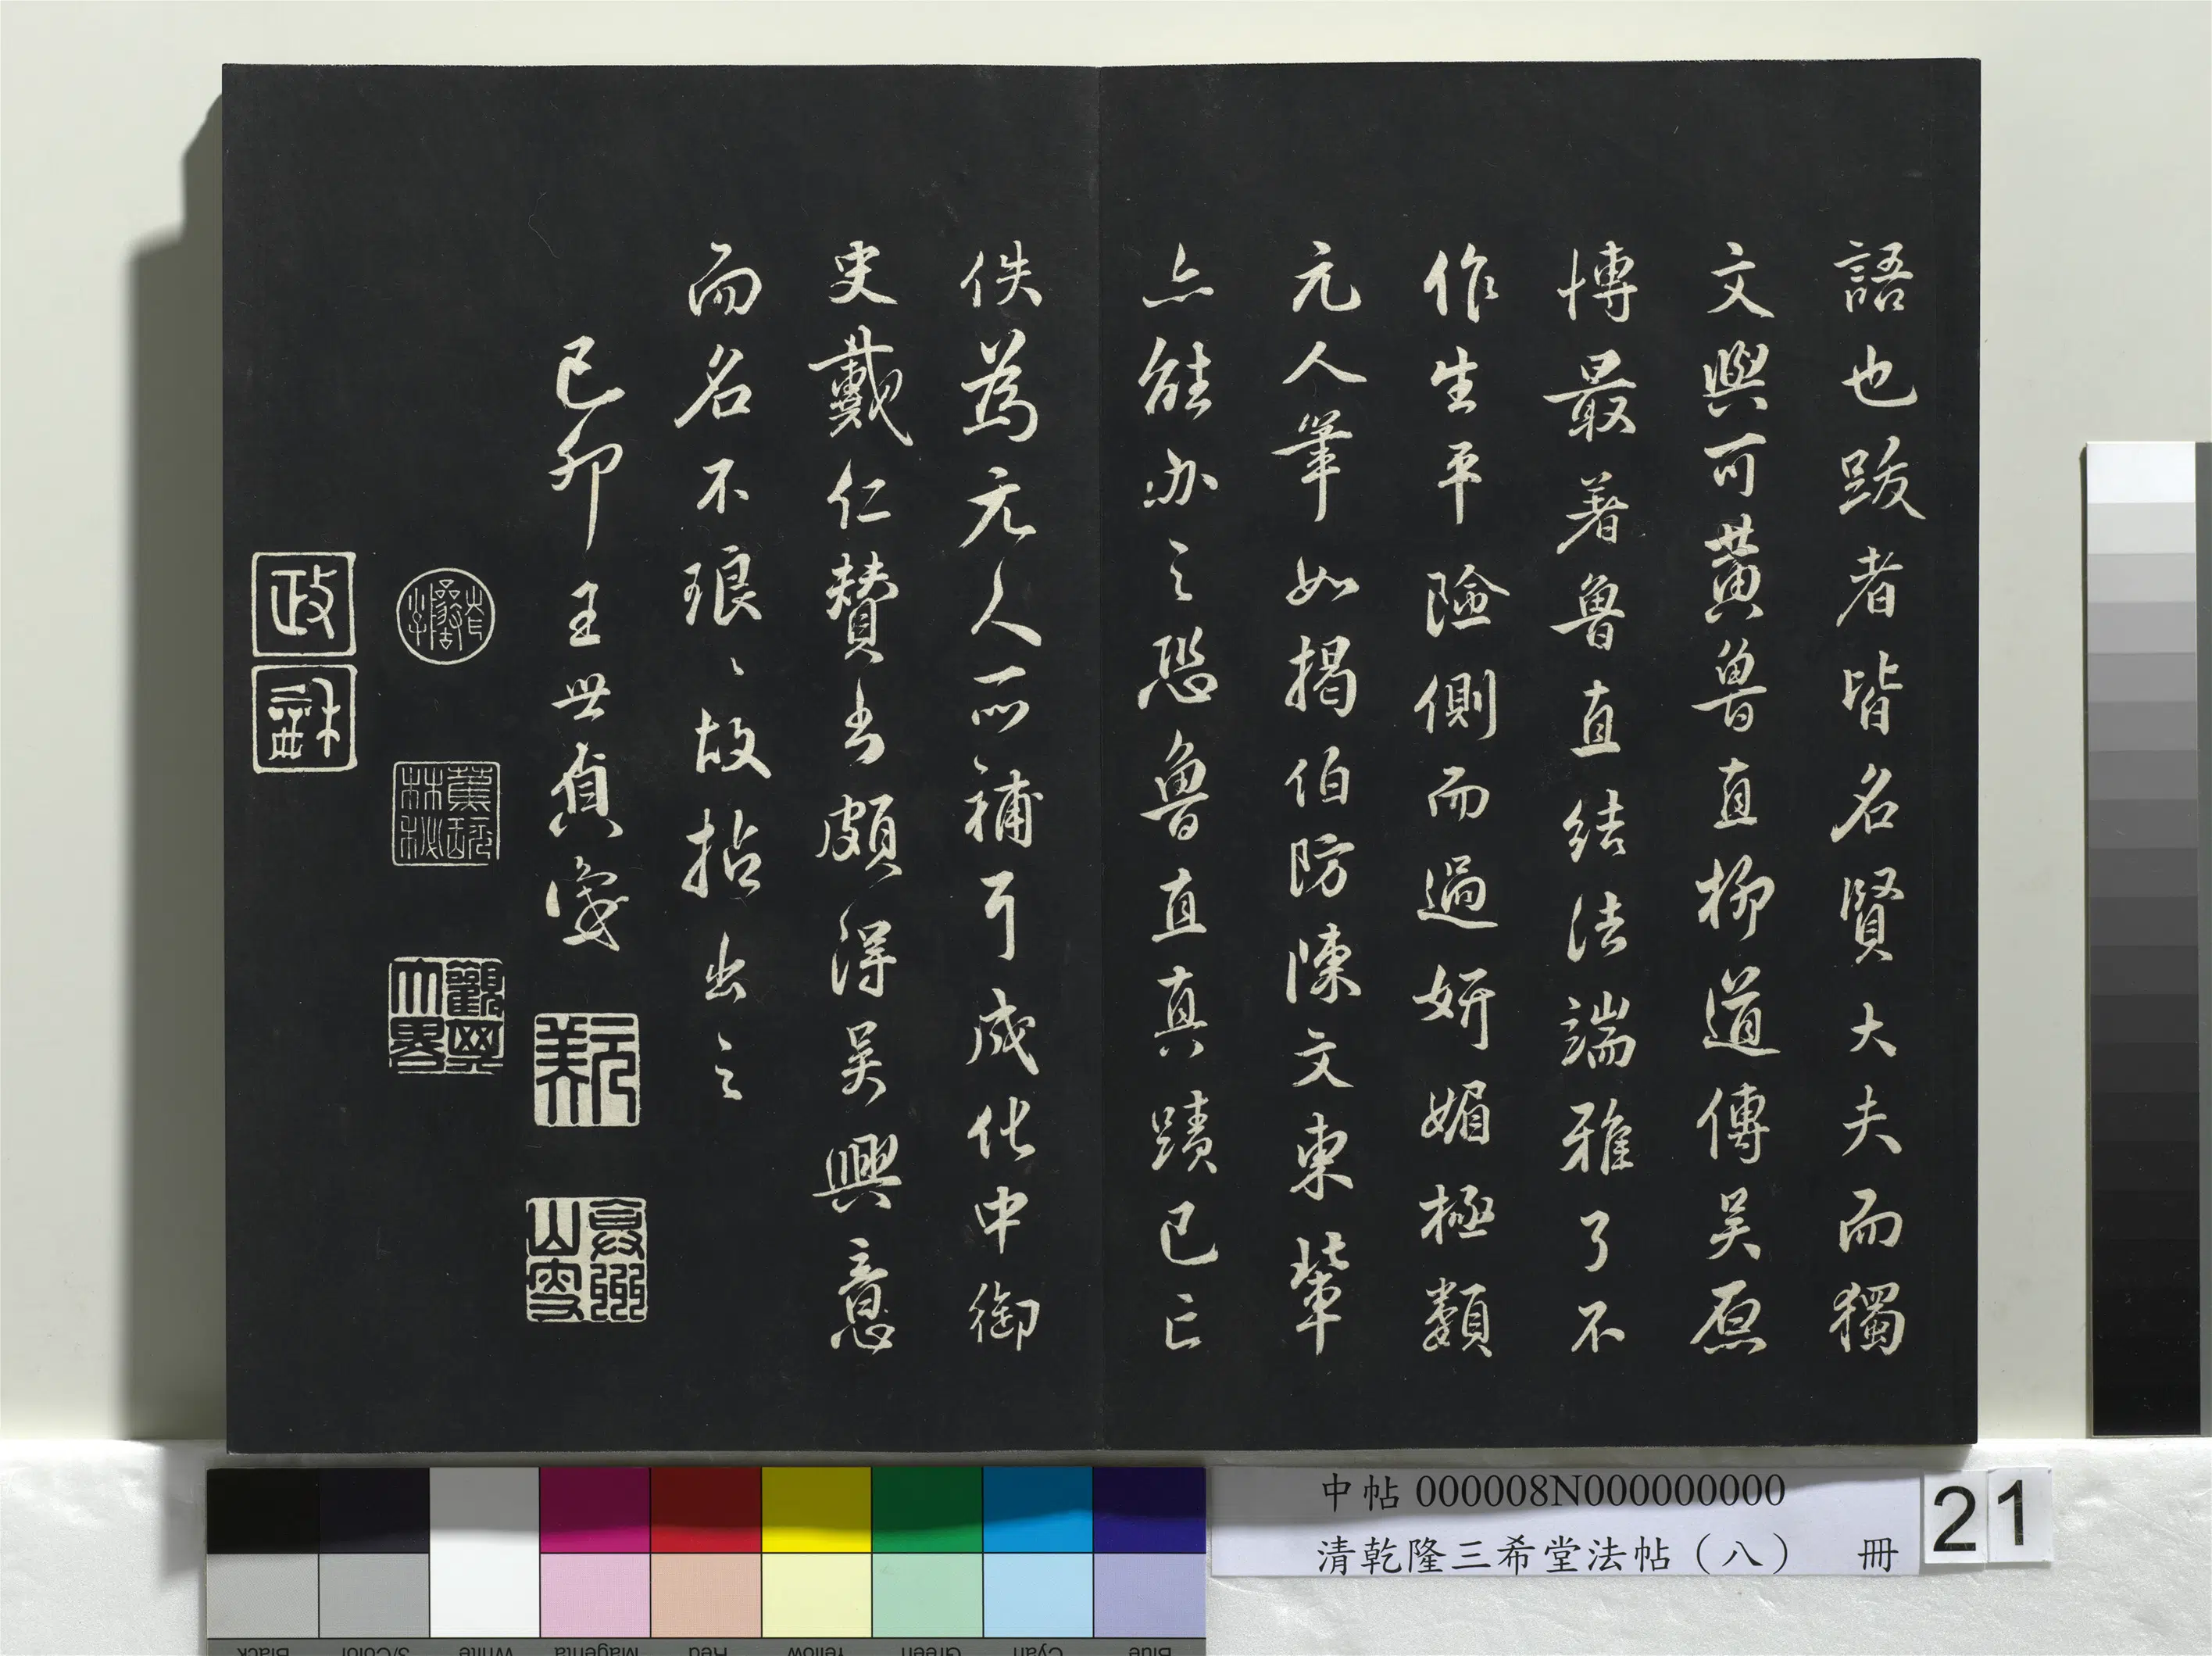 語也跋者皆名賢大夫而獨
文與可黃魯直柳道傳吳原
博最著魯直結法端雅了不
作生平險側而過妍媚極類
元人筆如揭伯防陳文東輩
亦能办之恐魯直真蹟已亡
佚為元人所補耳成化中御
史戴仁贊書頗得吳興意
而名不琅〻故拈出之
己卯王世貞識
元美
蕉林秘玩
觀其大略
政
中帖 000008N000000000
清乾隆三希堂法帖（八） 冊
21
Blue Cyan Green Yellow Red Magenta White 3/Color Black